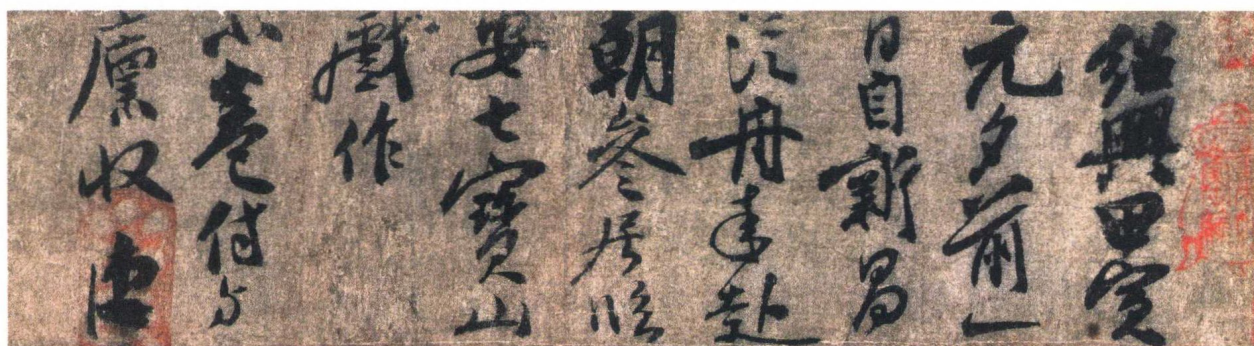 紹興甲寅
元夕前一
日自新昌
泛舟来赴
朝參居臨
安七寶山
戲作
小卷付与
廩收